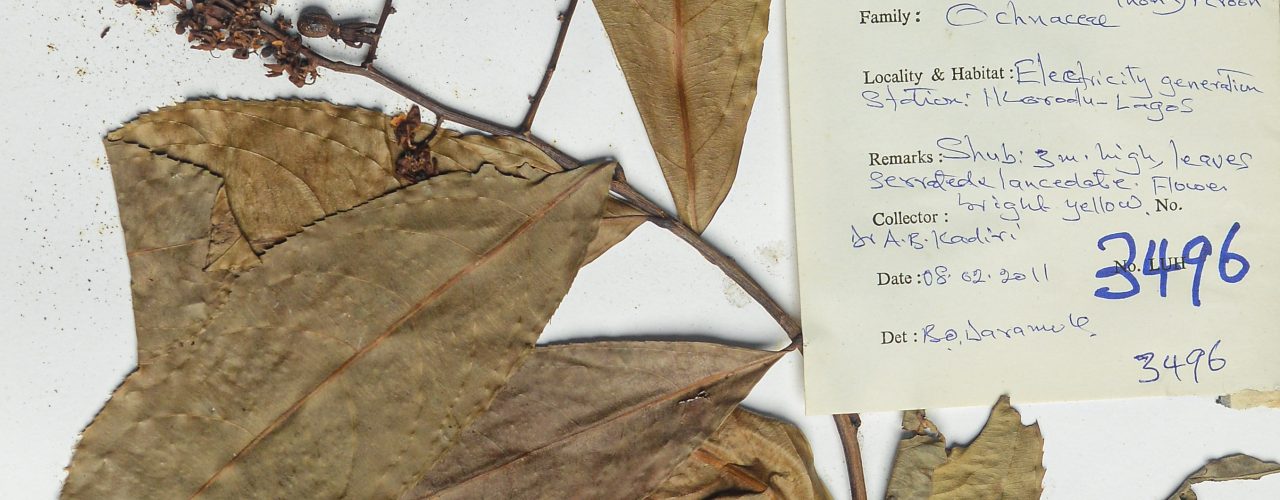 Family: Ochnaceae
Locality & Habitat: Electricity generation
Station: Ikorodu-Lagos
Remarks: Shub: 3m. high, leaves
serrated & lanceolate. Flower
bright yellow. No.
Collector:
Dr A.B. Kadiri
Date: 08.02.2011
No. LUH
3496
Det: B.O. Daramola
3496